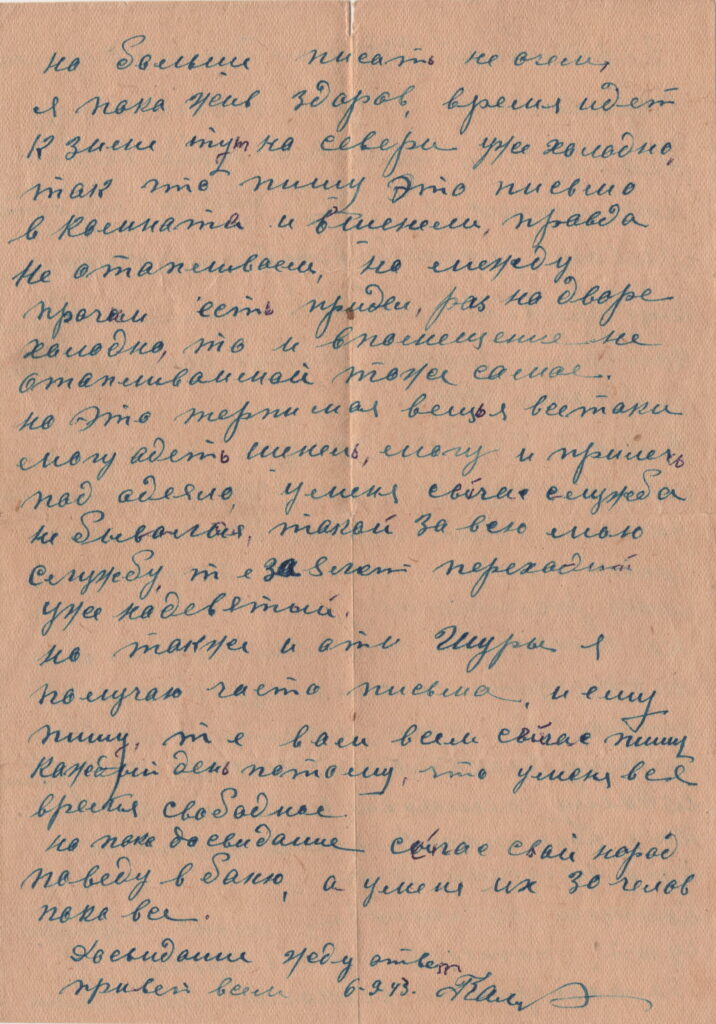 но больши писать не очем,
я пока жив здоров, время идет
к зиме тут на севери уже холодно,
так что пишу это письмо
в комната и вшинели, правда
не отапливаем, но между
прочим есть придел, раз на дворе
холодно, то и впомещение не
отапливаимой тоже самое.
но это терпимая вещья всетаки
могу адеть шинель, могу и прилечь
под одеяло, уменя сейчас служба
не бывалая, такой за всю мою
службу, т е за 8 лет переходный
уже надевятый.
но также и оти Шуры я
получаю часто письма, и ему
пишу, т е вам всем сейчас пишу
каждый день потому, что уменя всё
время свободное
но пока досвидание сейчас свой народ
поведу в баню, а уменя их 30 челов
пока все.
Досвидание жду ответ
привет всем 6-9 43.